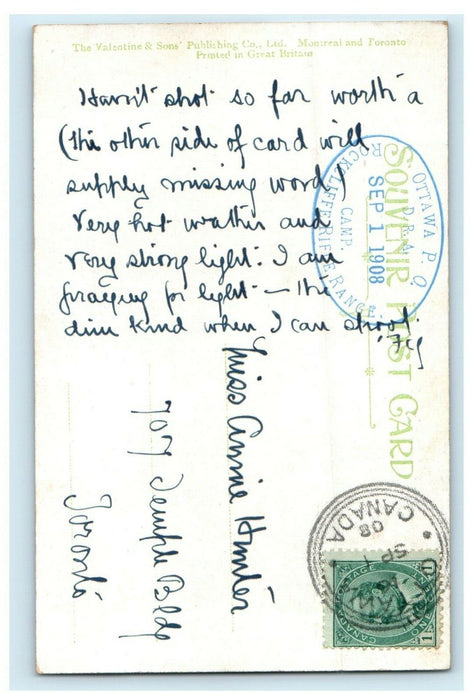 The Valentine & Sons' Publishing Co., Ltd. Montreal and Toronto
Printed in Great Britain
Havn't shot so far worth a
(the other side of card will
supply missing word)
Very hot weather and
very strong light. I am
praying for light — the
dim kind when I can shoot.
SOUVENIR POST CARD
OTTAWA P. O.
D.R.A.
SEP 1 1908
CAMP.
ROCKLIFFE RIFLE RANGE.
Miss Annie Hunter
707 Temple Bldg
Toronto
CANADA
SP 1
08
CANADA POSTAGE
1